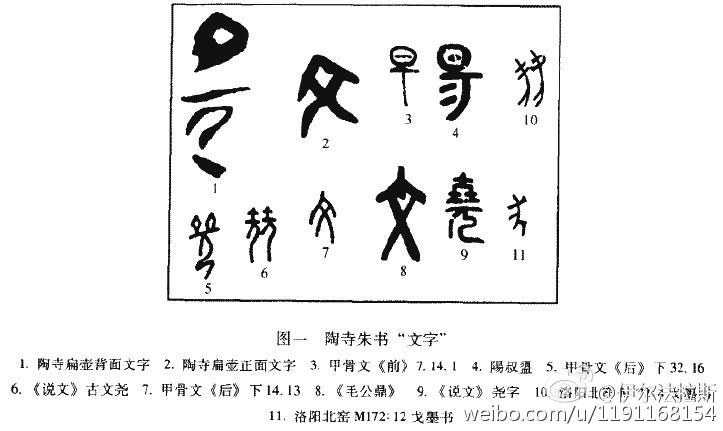 1
2
3
4
10
5
6
7
8
9
11
图一 陶寺朱书“文字”
1. 陶寺扁壶背面文字 2. 陶寺扁壶正面文字 3. 甲骨文《前》7.14.1 4. 陽叔盨 5. 甲骨文《后》下32.16
6. 《说文》古文尧 7. 甲骨文《后》下14.13 8. 《毛公鼎》 9. 《说文》尧字 10. 洛阳北
11. 洛阳北窑M172:12戈墨书
@伊尔法拉斯
weibo.com/u/1191168154